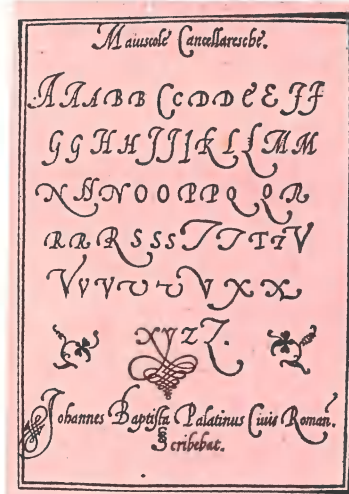 Maiuscole Cancellaresche.
A A A B B C C D D E E F F
G G H H I J I K L L M M
N N N O O P P Q Q R
R R R S S S T T T T V
V V V V V V X X
X Y Z Z.
Johannes Baptista Palatinus Civis Roman.
Scribebat.